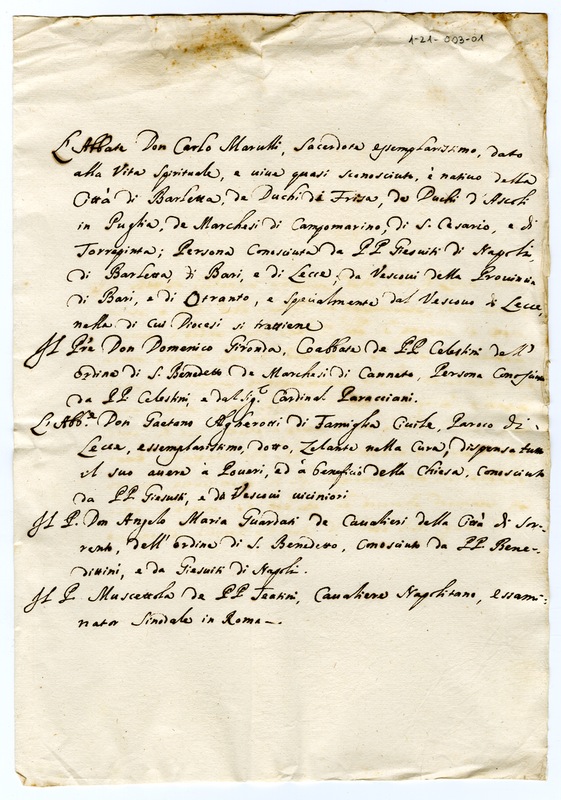 1-21-003-01
L'Abbate Don Carlo Marulli, Sacerdote essemplarissimo, dato
alla Vita Spirituale, e uiue quasi sconosciuto, è natiuo della
Città di Barletta, de Duchi di Frisa, de Duchi d'Ascoli
in Puglia, de Marchesi di Campomarino, di S. Cesario, e di
Torrepinta; Persona Conosciuta da PP. Giesuiti di Napoli,
di Barletta, di Bari, e di Lecce, da Vescoui della Prouincia
di Bari, e di Otranto, e specialmente dal Vescouo di Lecce,
nella di cui Diocesi si trattiene
Il Pre Don Domenico Gironda, Coabbate de PP. Celestini dell'
ordine di S. Benedetto de Marchesi di Canneto, Persona Conosciuta
da PP. Celestini, e dal Sig.r Cardinal Paracciani.
L'Abb.e Don Gaetano Algherotti di Famiglia Ciuile, Paroco di
Lecce, essemplarissimo, dotto, Zelante nella Cura, dispensa tutto
il suo auere à Poueri, ed à beneficio della Chiesa, conosciuto
da PP. Giesuiti, e da Vescoui uiciniori
Il P. Don Angelo Maria Guardati de Caualieri della Città di Sor-
rento, dell'ordine di S. Benedetto, conosciuto da PP. Bene-
dittini, e da Giesuiti di Napoli.
Il P. Muscettola de PP. Teatini, Caualiere Napolitano, essami-
nator Sinodale in Roma.